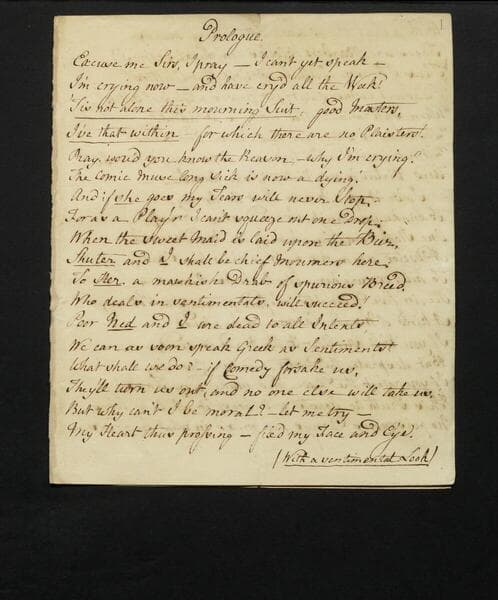 1
Prologue.
Excuse me Sirs, I pray — I can't yet speak —
I'm crying now — and have cry'd all the Week!
'Tis not alone this mourning Suit, good Masters,
I've that within — for which there are no Plaisters!
Pray wou'd you know the Reason — why I'm crying?
The Comic Muse long Sick is now a dying!
And if she goes my Tears will never Stop,
For as a Play'r I can't squeeze out one Drop:
When the Sweet Maid is laid upon the Bier,
Shuter and I shall be chief Mourners here.
To Her a mawkish Drab of spurious Breed,
Who deals in sentimentals, will succeed!
Poor Ned and I are dead to all Intents
We can as soon speak Greek as Sentiments!
What shall we do? — if Comedy forsake us,
They'll turn us out, and no one else will take us,
But why can't I be moral? — let me try —
My Heart thus pressing — fix'd my Face and Eye.
(With a sentimental Look)